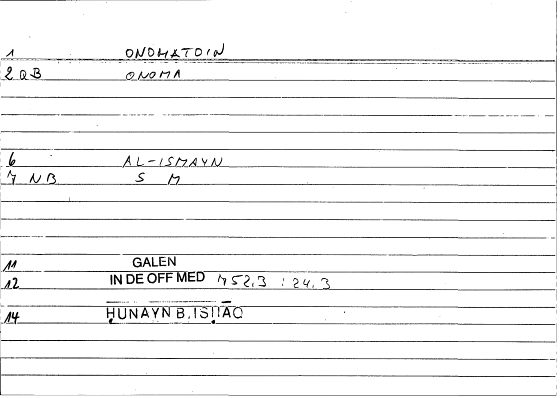 1 ONOMATOIN
2 QB ONOMA
6 AL-ISMAYN
7 NB S M
11 GALEN
12 IN DE OFF MED 752,3 : 24,3
14 ḤUNAYN B. ISḤĀQ